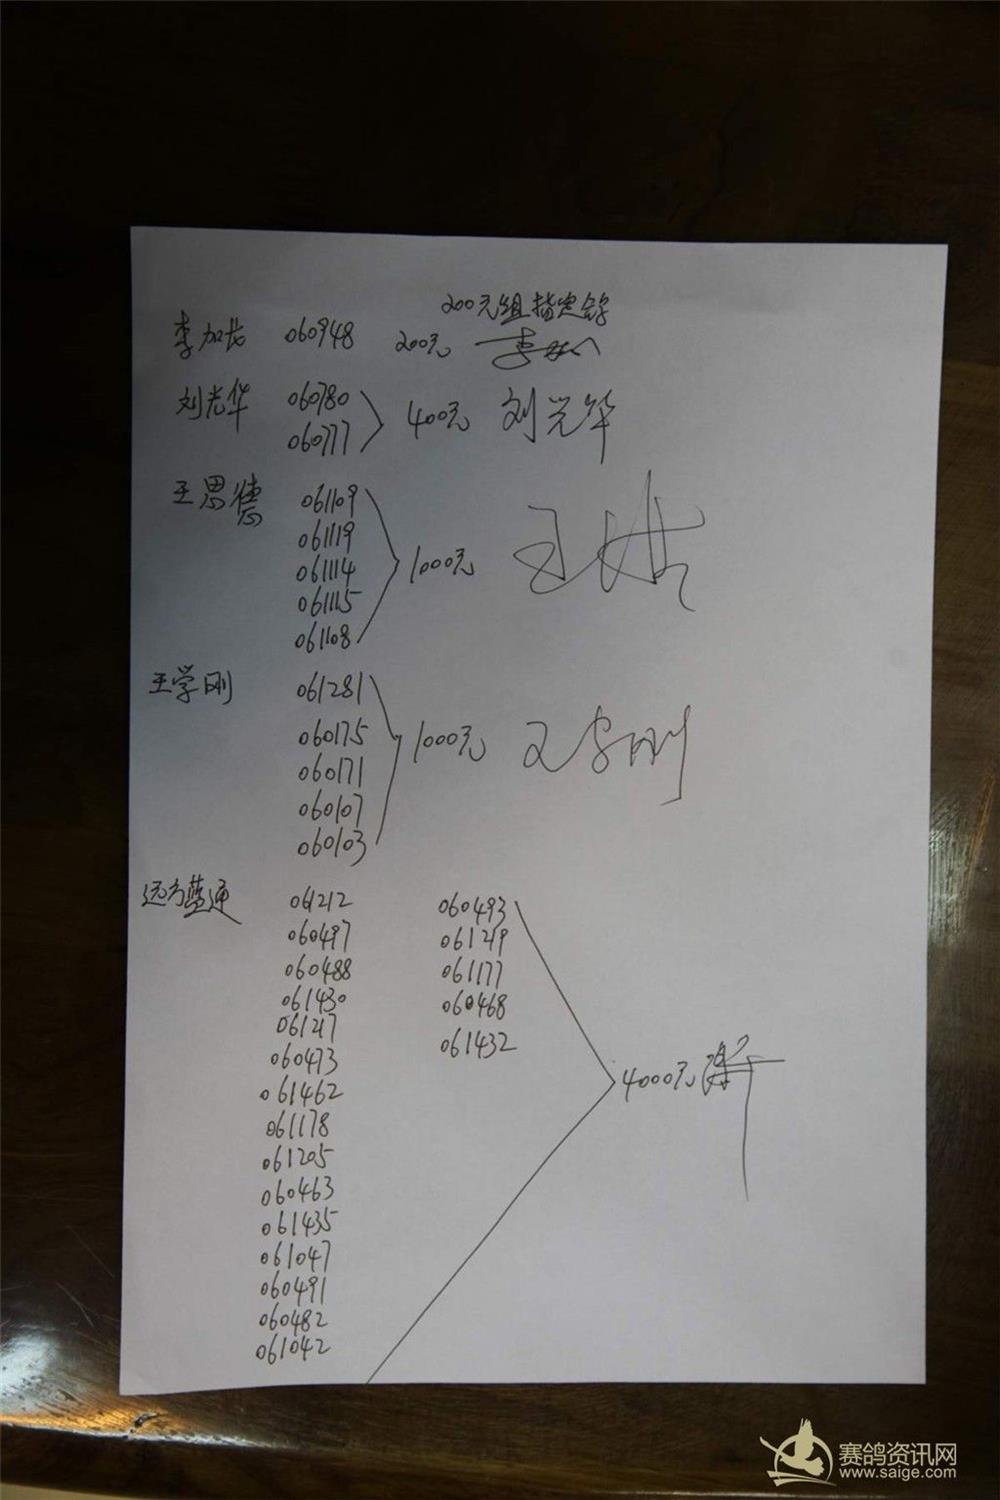 200元组指定鸽
李加长 060948 200元
刘光华 060780 400元 刘光华
060777
王思德 061109
061119
061114 1000元
061115
061108
王学刚 061281
060175 1000元 王学刚
060171
060107
060103
远方蓝通 061212 060493
060497 061219
060488 061177
061430 060468
061217 061432
060473
061462 4000元
061178
061205
060463
061435
061047
060491
060482
061042
赛鸽资讯网
www.saige.com